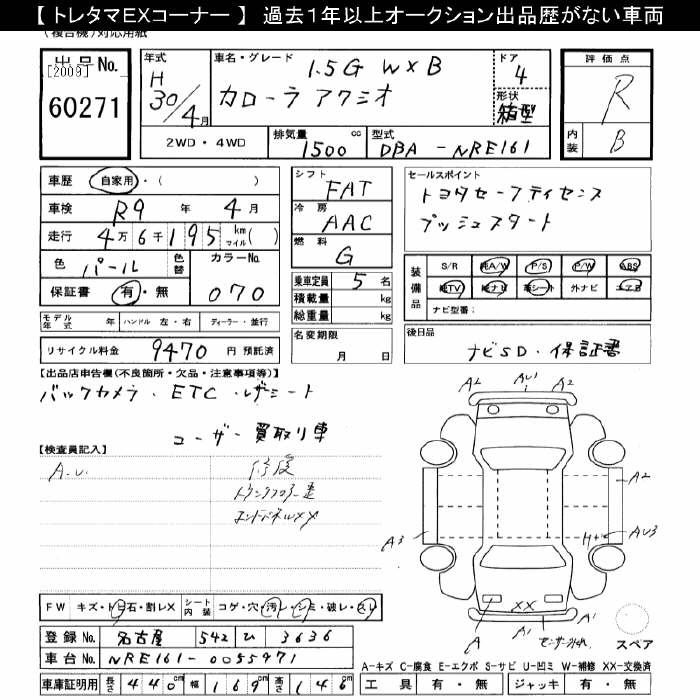 【 トレタマEXコーナー 】 過去１年以上オークション出品歴がない車両
(複合機)対応用紙
出品No.
[2009]
60271
年式
H
30/4月
車名・グレード
1.5G W×B
カローラ アクシオ
ドア
4
形状
箱型
評価点
R
内装
B
2WD・4WD
排気量
1500
cc
型式
DBA - NRE161
車歴 自家用・( )
車検 R9 年 4 月
走行 4万6千195 km マイル( )
色 パール 色替 カラーNo.
保証書 有・無 070
シフト FAT
冷房 AAC
燃料 G
乗車定員 5 名
積載量 kg
総重量 kg
セールスポイント
トヨタセーフティセンス
プッシュスタート
装備品
S/R 純A/W P/S P/W ABS
純TV 純ナビ 革シート 外ナビ エアB
ナビ型番:
モデル年式 年 ハンドル 左・右 ディーラー・並行
名変期限
月 日
後日品
ナビSD・保証書
リサイクル料金 9470 円 預託済
【出品店車告欄(不良箇所・欠品・注意事項等)】
バックカメラ・ETC・レザーシート
ユーザー買取り車
【検査員記入】
A.U.
修復
トランクフロアー
エンドパネルXX
A2 AU1 A2
A2
A3 H+ AU3
XX
A A1 A1
スペア
FW キズ・トビ石・割レX シート内装 コゲ・穴・汚レ・シミ・破レ・スレ
登録No. 名古屋 542 ひ 3636
車台No. NRE161-0055971
車庫証明用 長さ 440cm 幅 169cm 高さ 146cm
A-キズ C-腐食 E-エクボ S-サビ U-凹ミ W-補修 XX-交換済
工具 有・無 ジャッキ 有・無